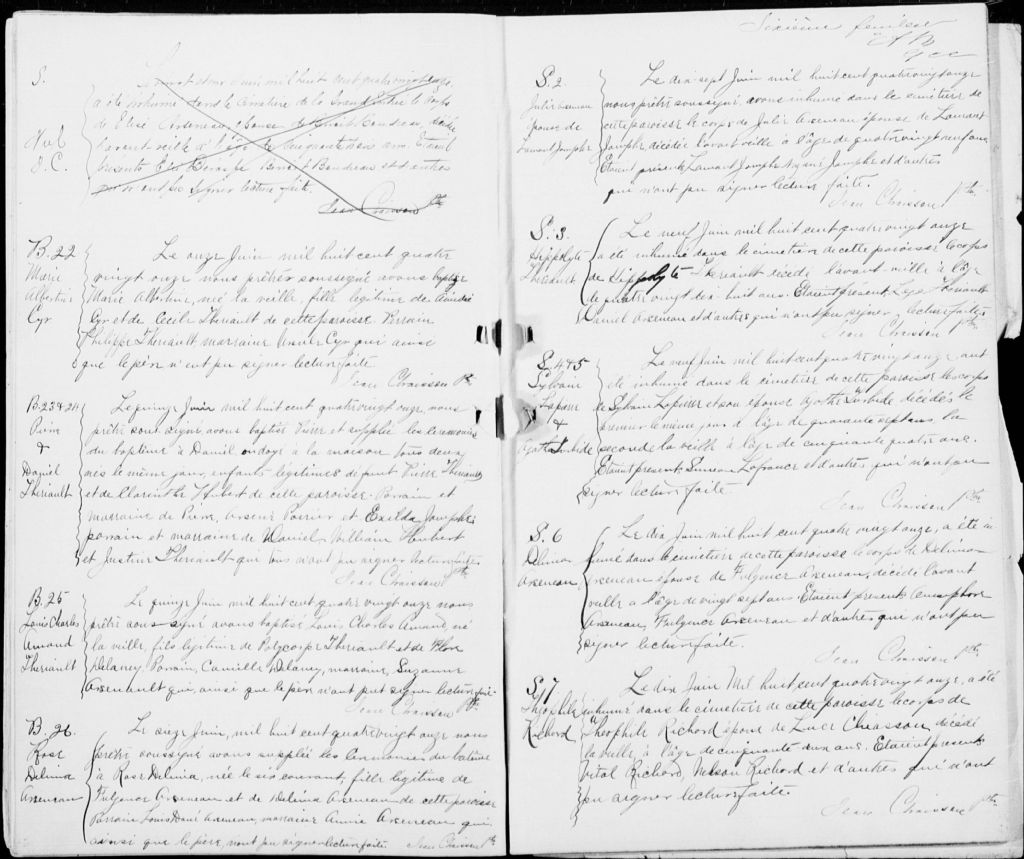 S.
Nul
D.C.
mil huit cent quatre vingt onze,
a été inhumé dans le cimetière de la
de Elisé Arseneau épouse de Benoit Boudreau,
l'avant veille à l'âge de cinquante six ans. Etaient
présents Benoit Boudreau et d'autres
qui n'ont pu signer lecture faite.
Jean Chaisson Ptre
B. 22
Marie
Albertine
Cyr
Le onze Juin mil huit cent quatre
vingt onze nous prêtre soussigné avons baptisé
Marie Albertine, né la veille, fille légitime de Amédé
Cyr et de Cecile Theriault de cette paroisse. Parrain
Philippe Theriault marraine Ursule Cyr qui ainsi
que le père n'ont pu signer lecture faite.
Jean Chaisson Ptr
B. 23 & 24
Pierre
&
Daniel
Theriault
Le quinze Juin mil huit cent quatre vingt onze nous
prêtre sous signé, avons baptisé Pierre et supplié les cérémonies
du baptême à Daniel ondoyé à la maison tous deux
nés le même jour, enfants légitimes de Pierre Theriault
et de Clarinthe Hubert de cette paroisse. Parrain et
marraine de Pierre, Arsene Poirrier et Exilda Jomphe;
parrain et marraine de Daniel, William Herbert
et Justine Theriault qui tous n'ont pu signer lecture faite.
Jean Chaisson Ptre
B. 25
Louis Charles
Amand
Theriault
Le quinze Juin mil huit cent quatre vingt onze nous
prêtre sous signé avons baptisé Louis Charles Amand, né
la veille, fils légitime de Polycarpe Theriault et de Flore
Delaney, Parrain, Camille Delaney, marraine, Suzanne
Arsenault qui, ainsi que le père n'ont put signer lecture faite.
Jean Chaisson Ptre
B. 26.
Rose
Delima
Arseneau
Le seize Juin, mil huit cent quatre vingt onze nous
prêtre soussigné avons supplée les Ceremonies du batême
à Rose Delima, née le six courant, fille légitime de
Fulgence Arseneau et de Delima Arseneau de cette paroisse
Parrain Louis Arseneau, marraine Annie Arseneau qui
ainsi que le père, n'ont pu signer lecture faite. Jean Chaisson Ptre
Sixième feuillet
S. 2
Julie Arseneau
épouse de
Laurant Jomphe
Le dix sept Juin mil huit cent quatre vingt onze
nous prêtre soussigné, avons inhumé dans le cimetière de
cette paroisse le corps de Julie Arseneau épouse de Laurant
Jomphe décédée l'avant veille à l'âge de quatre vingt neuf ans
Etaient présents Laurant Jomphe Jomphe et d'autres
qui n'ont pu signer lecture faite.
Jean Chaisson Ptre
S. 3.
Hippolyte
Theriault
Le neuf Juin mil huit cent quatre vingt onze
a été inhumé dans le cimetière de cette paroisse le corps
de Hippolyte Theriault décédé l'avant veille à l'âge
de quatre vingt dix huit ans. Etaient présents Theriault
Daniel Arseneau et d'autres qui n'ont pu signer lecture faite
Jean Chaisson Ptre
S. 4 & 5
Sylvain
Lapierre
&
Agathe Turbide
Le neuf Juin mil huit cent quatre vingt onze ont
été inhumé dans le cimetière de cette paroisse les corps
de Sylvain Lapierre et son épouse Agathe Turbide décédés le
premier le même jour à l'âge de quarante sept ans la
seconde la veille à l'âge de cinquante quatre ans.
Etaient présent Simeon Lafrance et d'autres qui n'ont pu
signer lecture faite.
Jean Chaisson Ptre
S. 6
Delima
Arseneau
Le dix Juin mil huit cent quatre vingt onze, a été in
humé dans le cimetière de cette paroisse le corps de Delima
Arseneau épouse de Fulgence Arseneau, décédé l'avant
veille a l'âge de vingt sept ans. Etaient présent Onesiphore
Arseneau, Fulgence Arseneau et d'autres qui n'ont pu
signer lecture faite.
Jean Chaisson Ptre
S. 7
Théophile
Richard
Le dix Juin Mil huit cent quatre vingt onze, a été
inhumé dans le cimetière de cette paroisse le corps de
Théophile Richard époux de Luce Chiasson décédé
la veille, à l'âge de cinquante deux ans. Etaient présents
Vital Richard, Nelson Richard et d'autres qui n'ont
pu signer lecture faite
Jean Chaisson Ptre